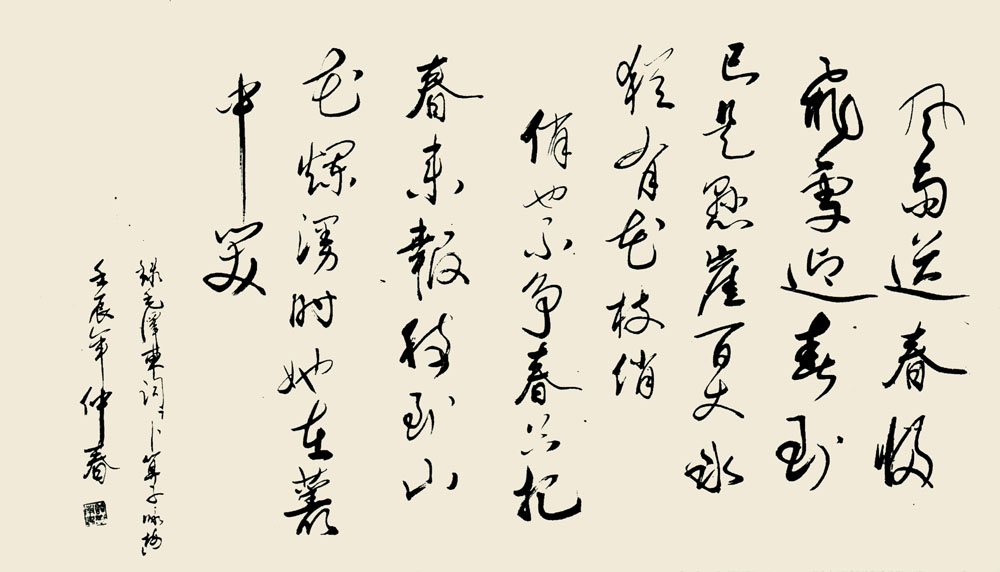 风雨送春归
飛雪迎春到
已是悬崖百丈冰
猶有花枝俏
俏也不争春只把
春来報待到山
花爛漫时她在叢
中笑
録毛澤東词卜算子咏梅
壬辰年仲春